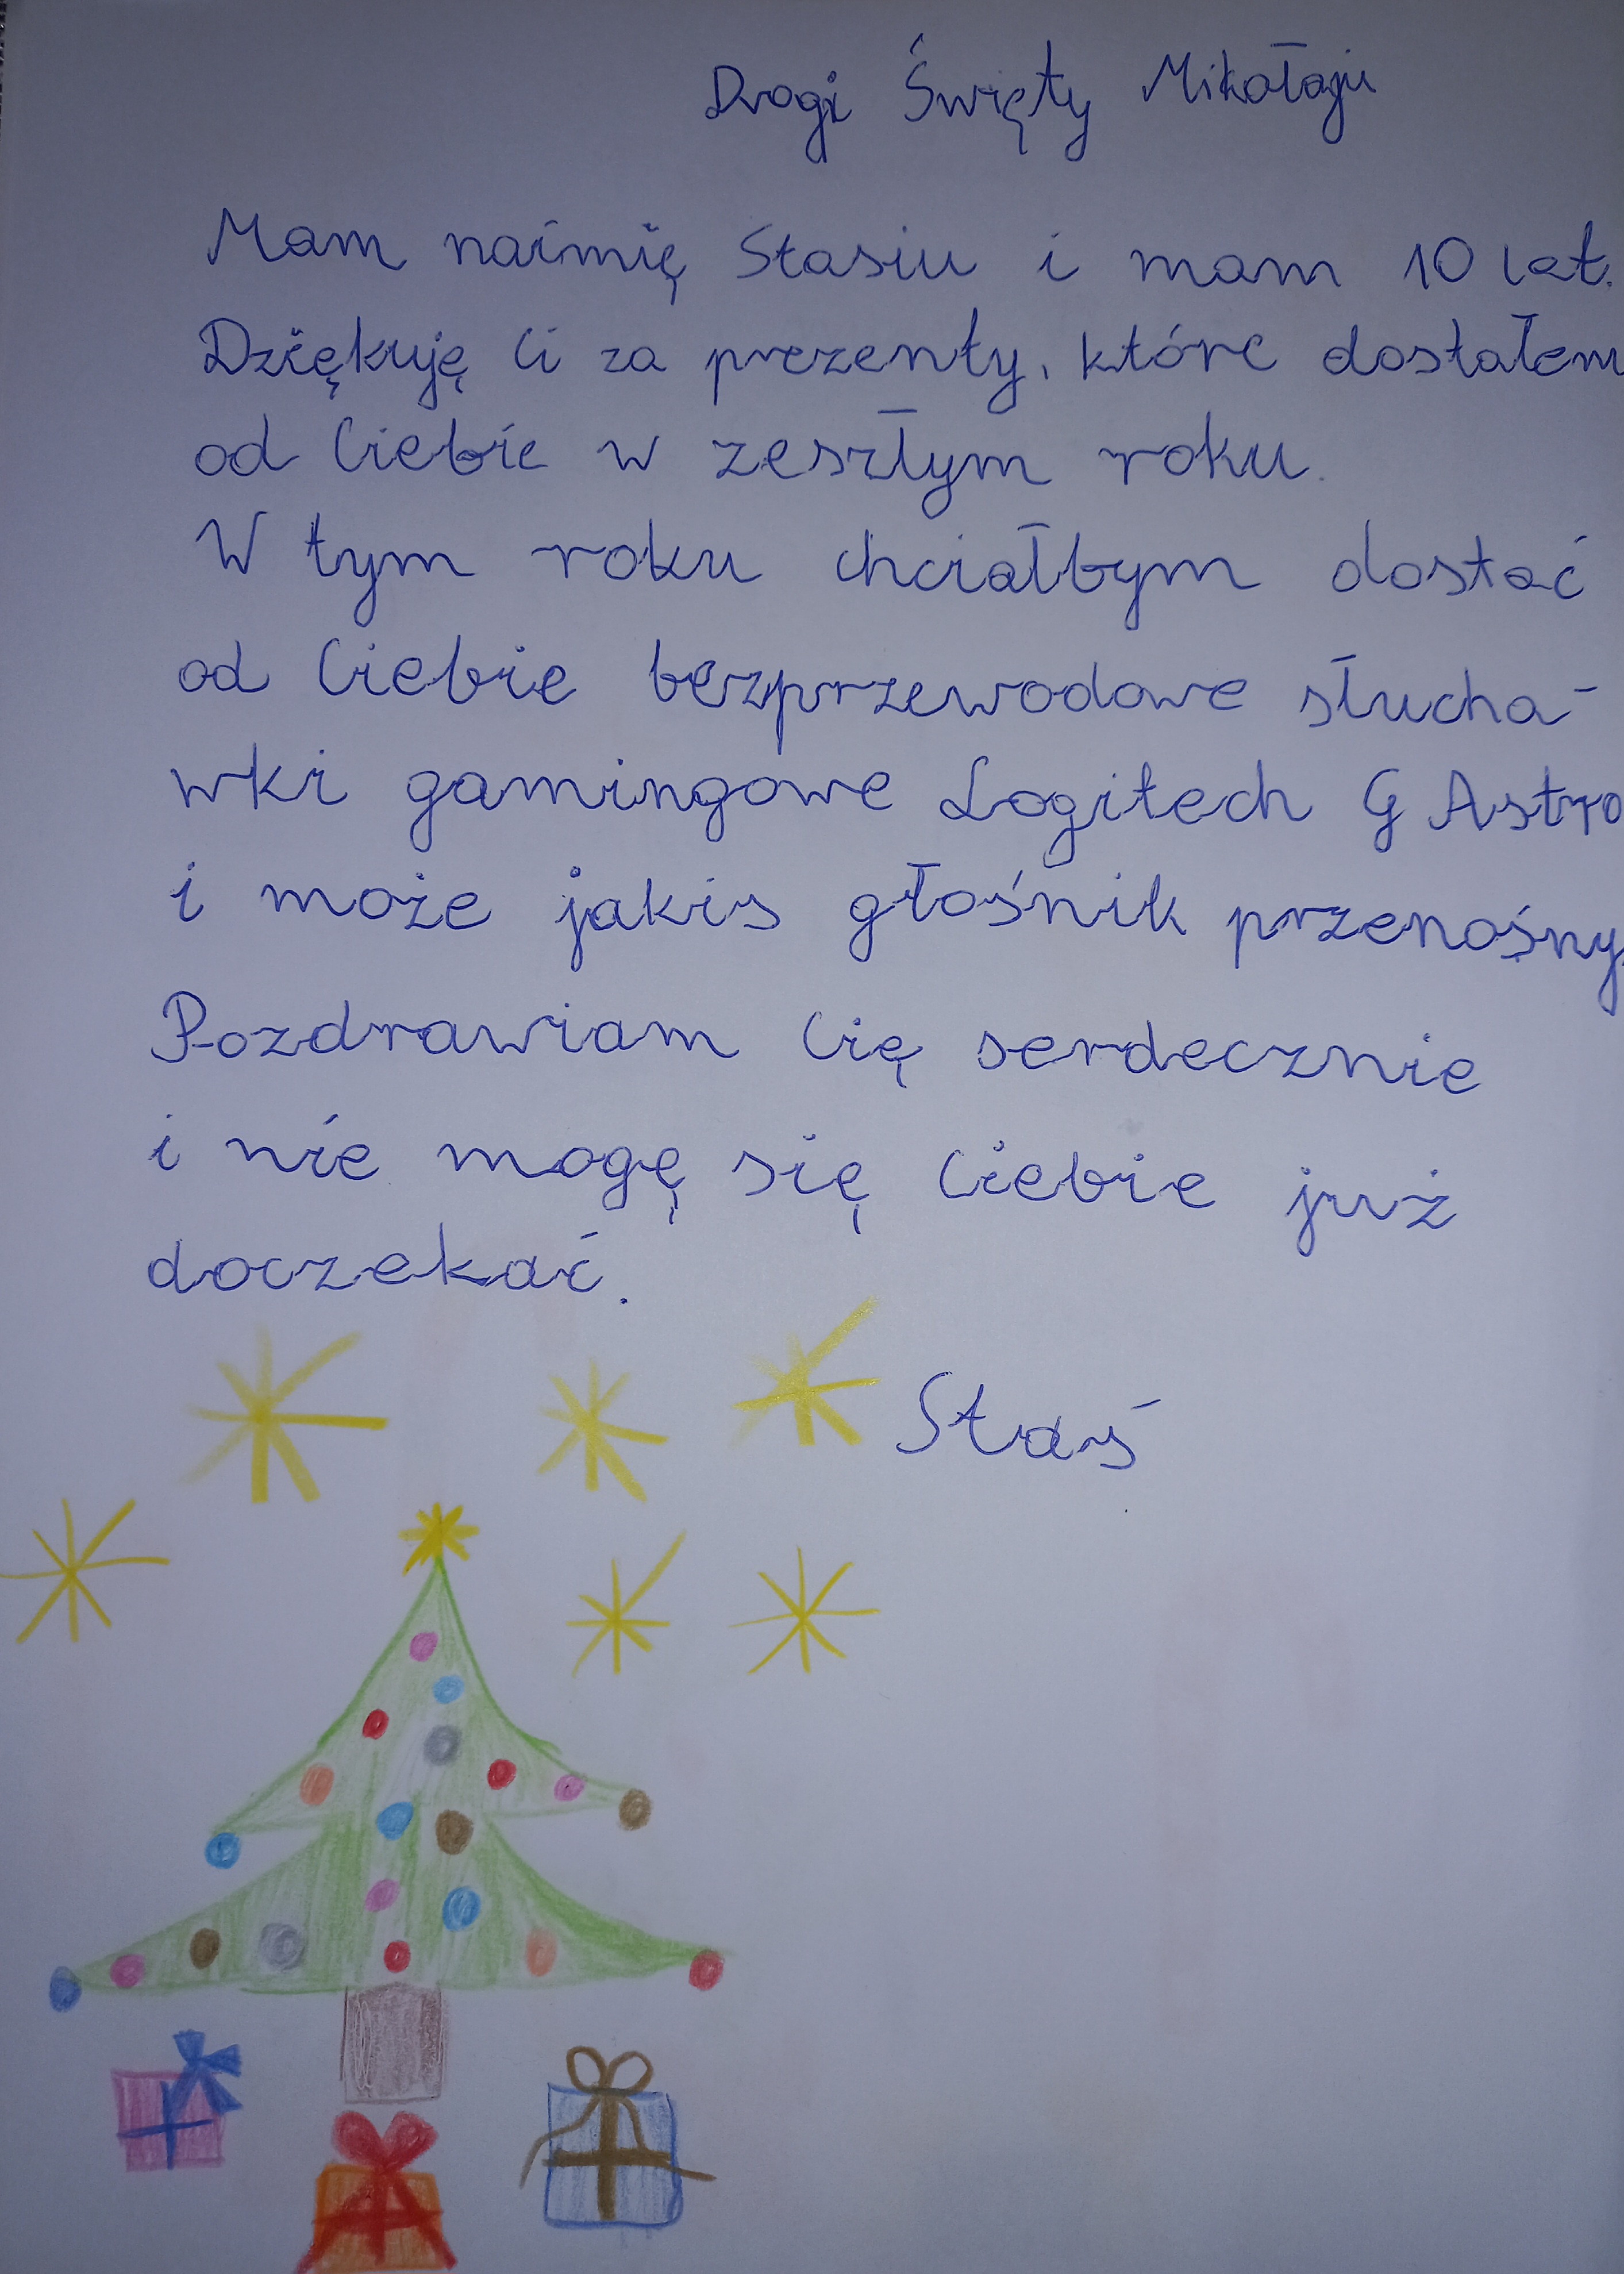 Drogi Święty Mikołaju
Mam naimię Stasiu i mam 10 lat.
Dziękuję Ci za prezenty, które dostałem
od Ciebie w zeszłym roku.
W tym roku chciałbym dostać
od Ciebie bezprzewodowe słucha-
wki gamingowe Logitech G Astro
i może jakis głośnik przenośny.
Pozdrawiam Cię serdecznie
i nie mogę się Ciebie już
doczekać.
Staś